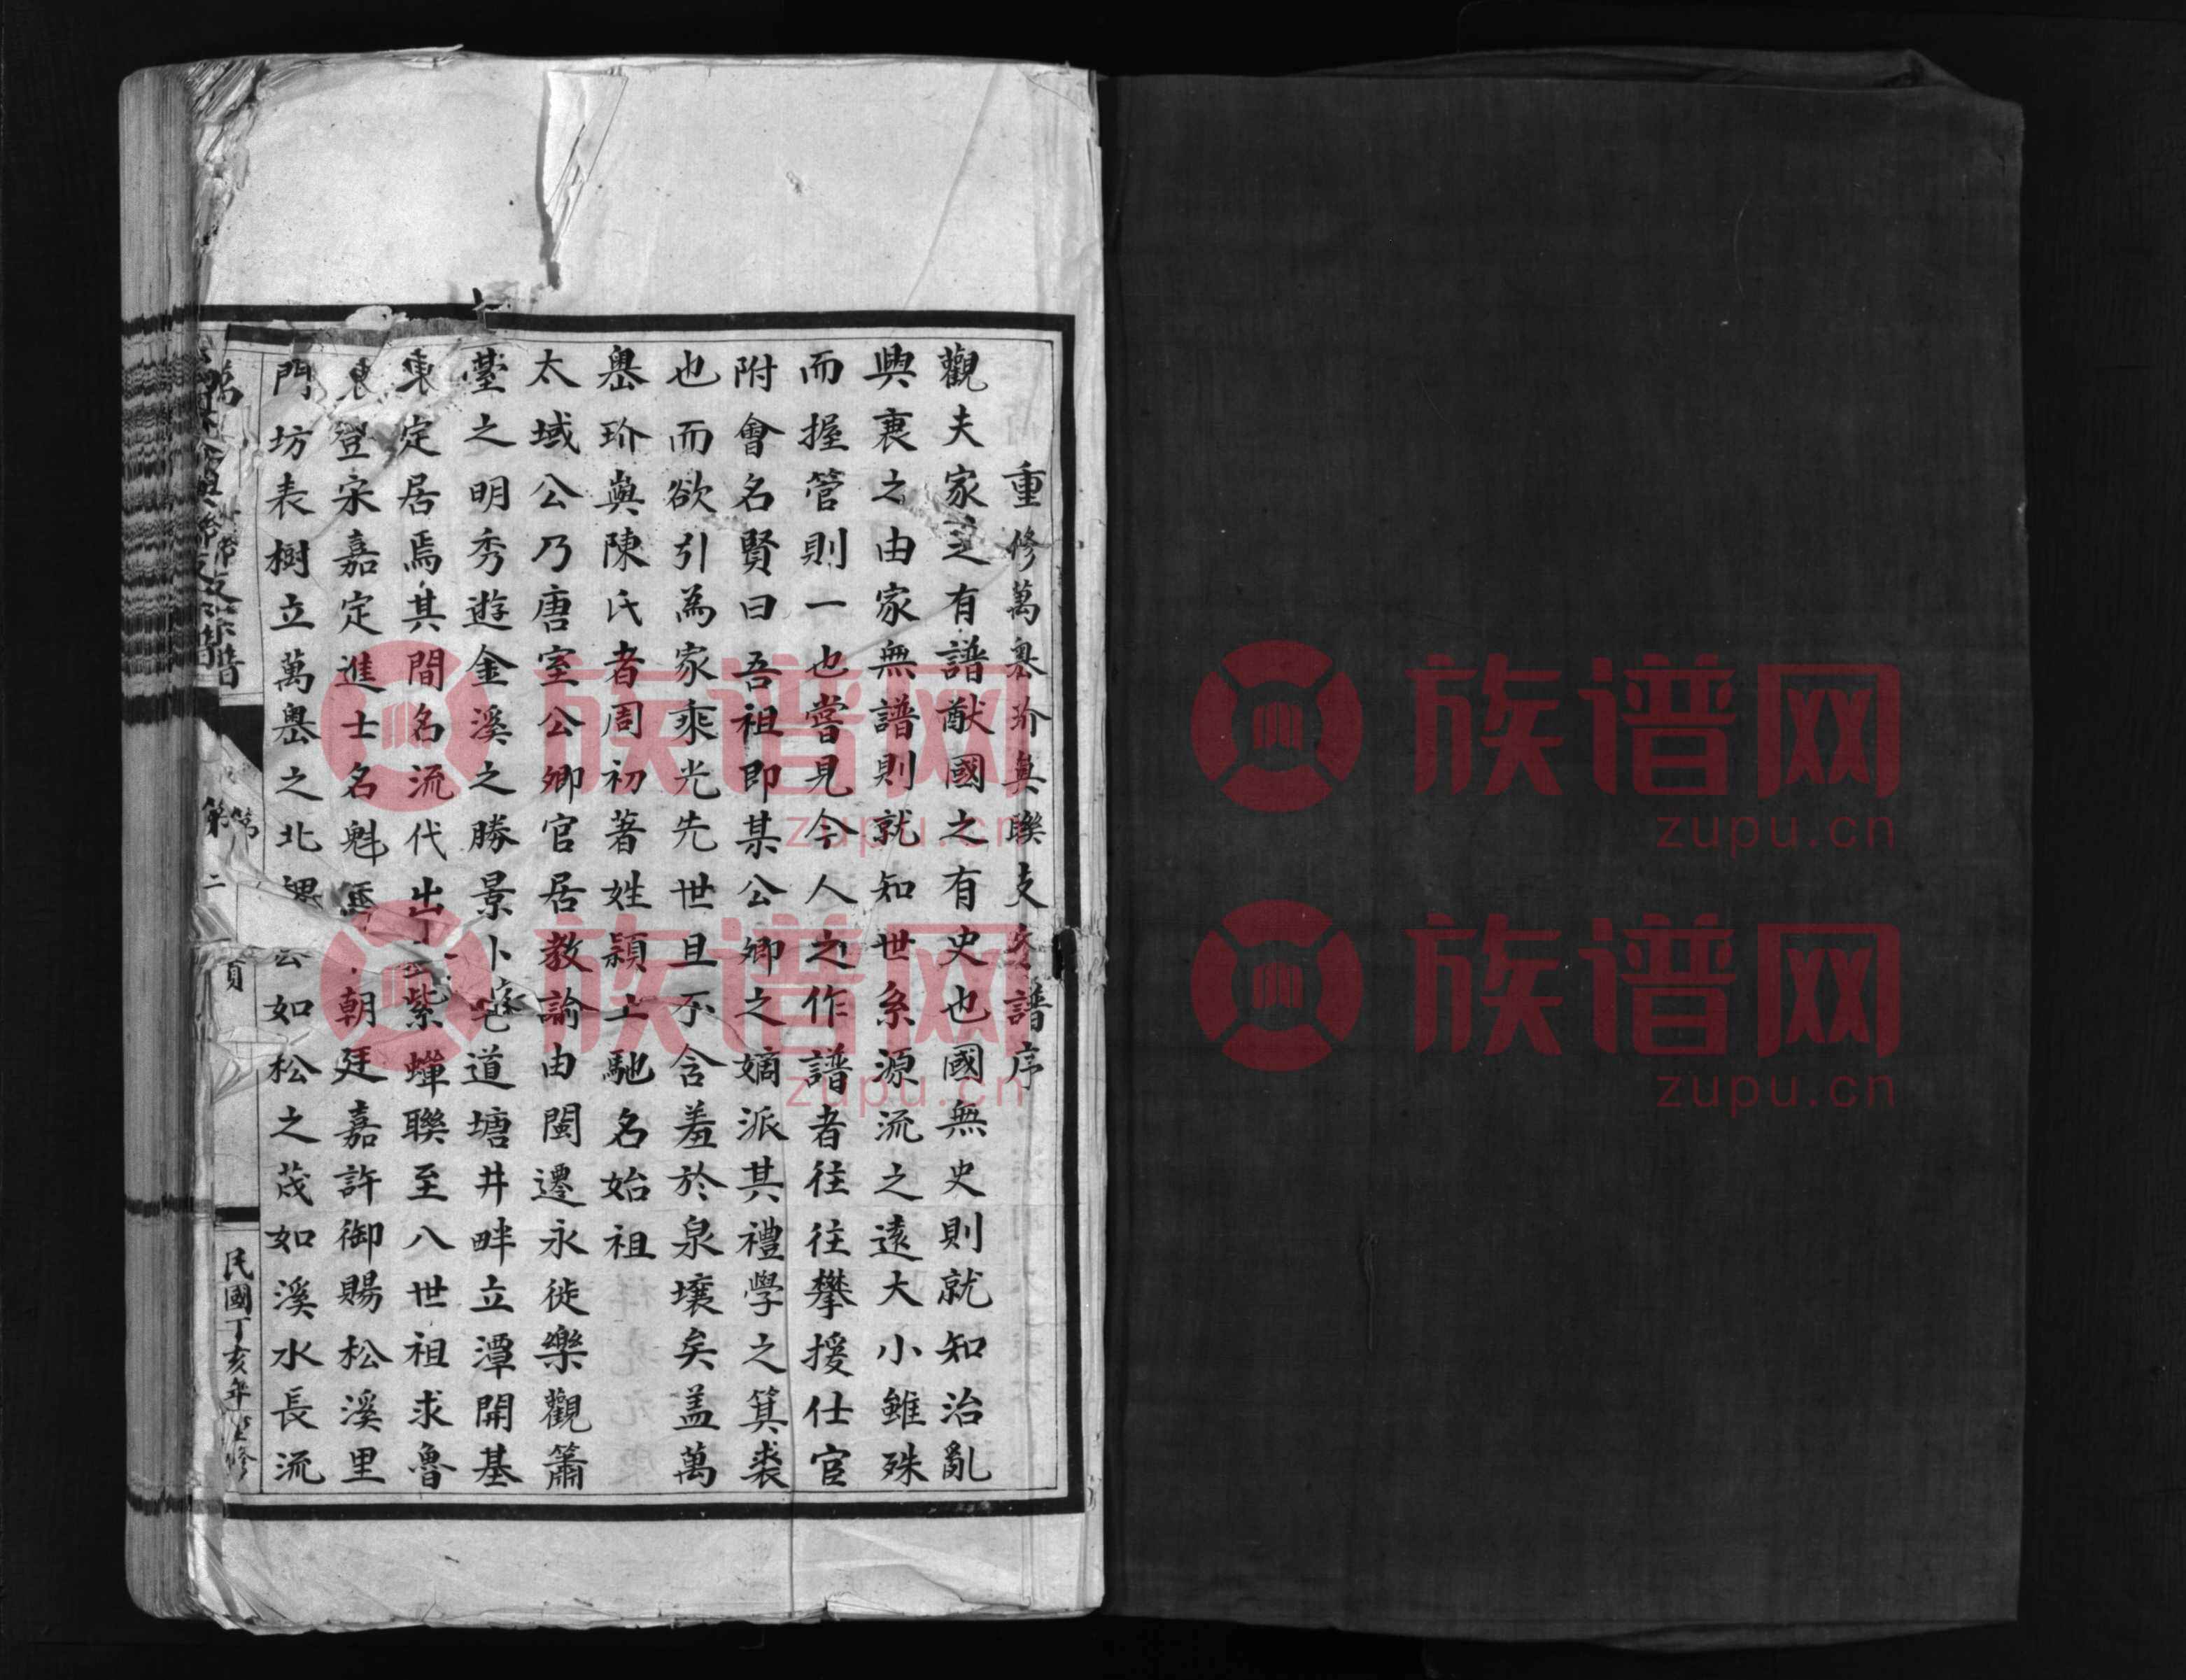 重修萬嶴玠㠘聯支宗譜序
觀夫家之有譜猷國之有史也國無史則就知治亂
興衰之由家無譜則就知世系源流之遠大小雖殊
而握管則一也嘗見今人之作譜者往往攀援仕宦
附會名賢曰吾祖即某公卿之嫡派其禮學之箕裘
也而欲引為家乘光先世且不含羞於泉壤矣盖萬
嶴玠㠘陳氏者周初著姓潁土馳名始祖
太域公乃唐室公卿官居教諭由閩遷永徙樂觀簫
臺之明秀遊金溪之勝景卜宅道塘井畔立潭開基
東定居焉其間名流代出紫蟬聯至八世祖求魯
登宋嘉定進士名魁朝廷嘉許御賜松溪里
門坊表樹立萬嶴之北公如松之茂如溪水長流
第二頁
民國丁亥年重修
族谱网
zupu.cn
族谱网
zupu.cn
族谱网
zupu.cn
族谱网
zupu.cn